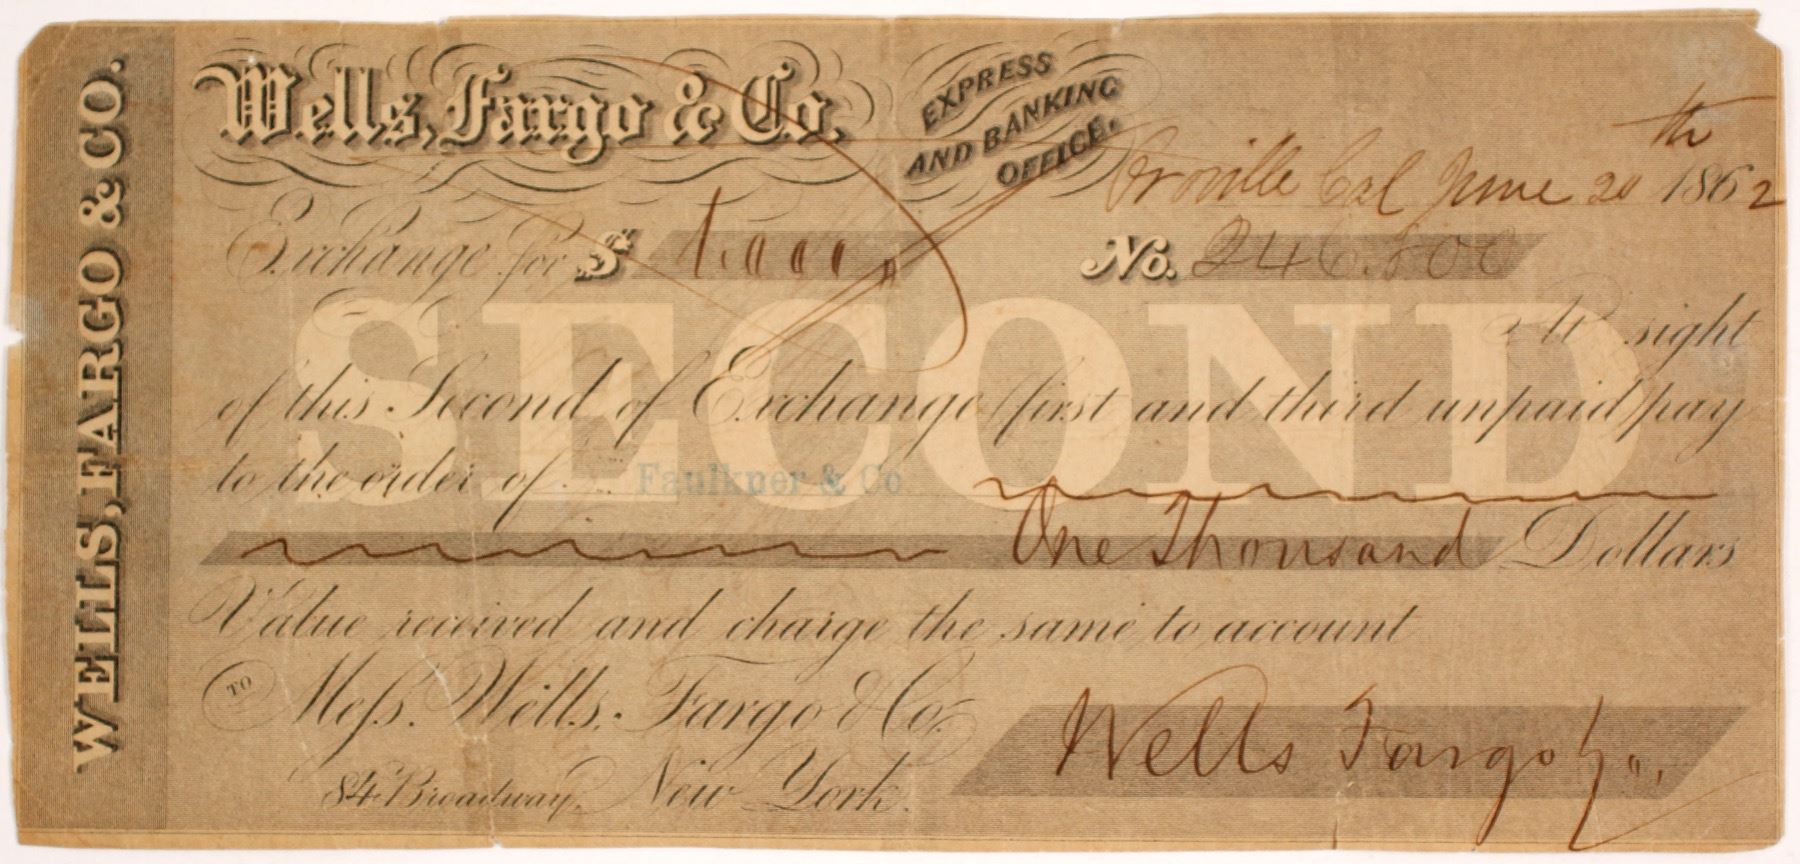 WELLS, FARGO & CO.
Wells, Fargo & Co.
EXPRESS
AND BANKING
OFFICE.
Oroville Cal June 20th 1862
Exchange for $ 1.000, No. 246.500
At sight
SECOND
of this Second of Exchange (first and third unpaid) pay
to the order of Faulkner & Co
One Thousand Dollars
Value received and charge the same to account
TO Mess. Wells, Fargo & Co.
84 Broadway, New York.
Wells Fargo & Co.,